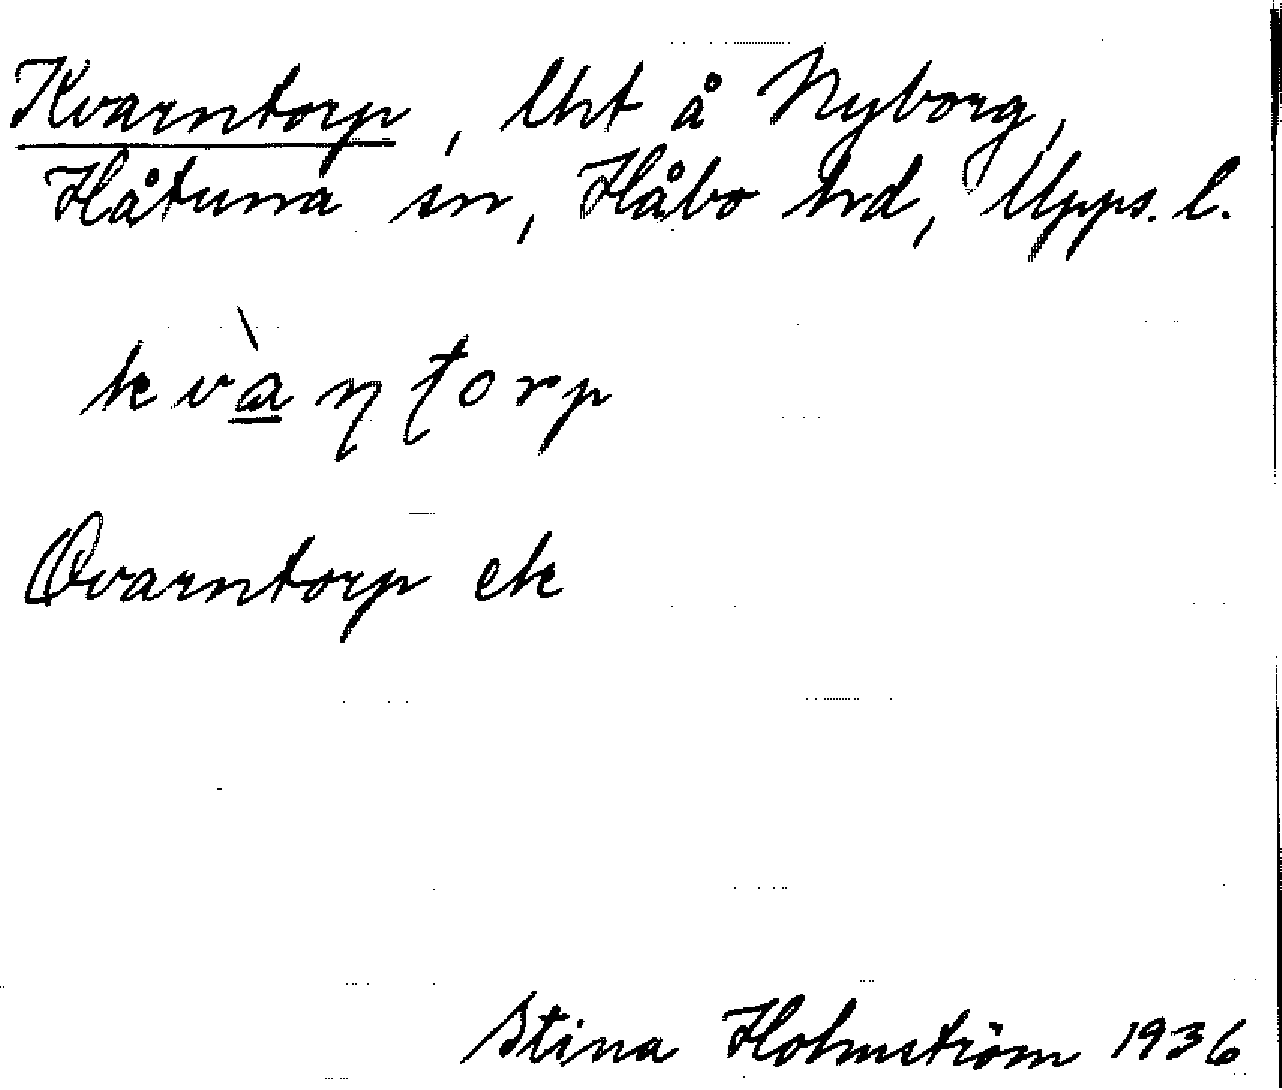 Kvarntorp, lht å Nyborg,
Håtuna sn, Håbo hd, Upps. l.
kvàɳʈorp
Qvarntorp ek
Stina Holmström 1936